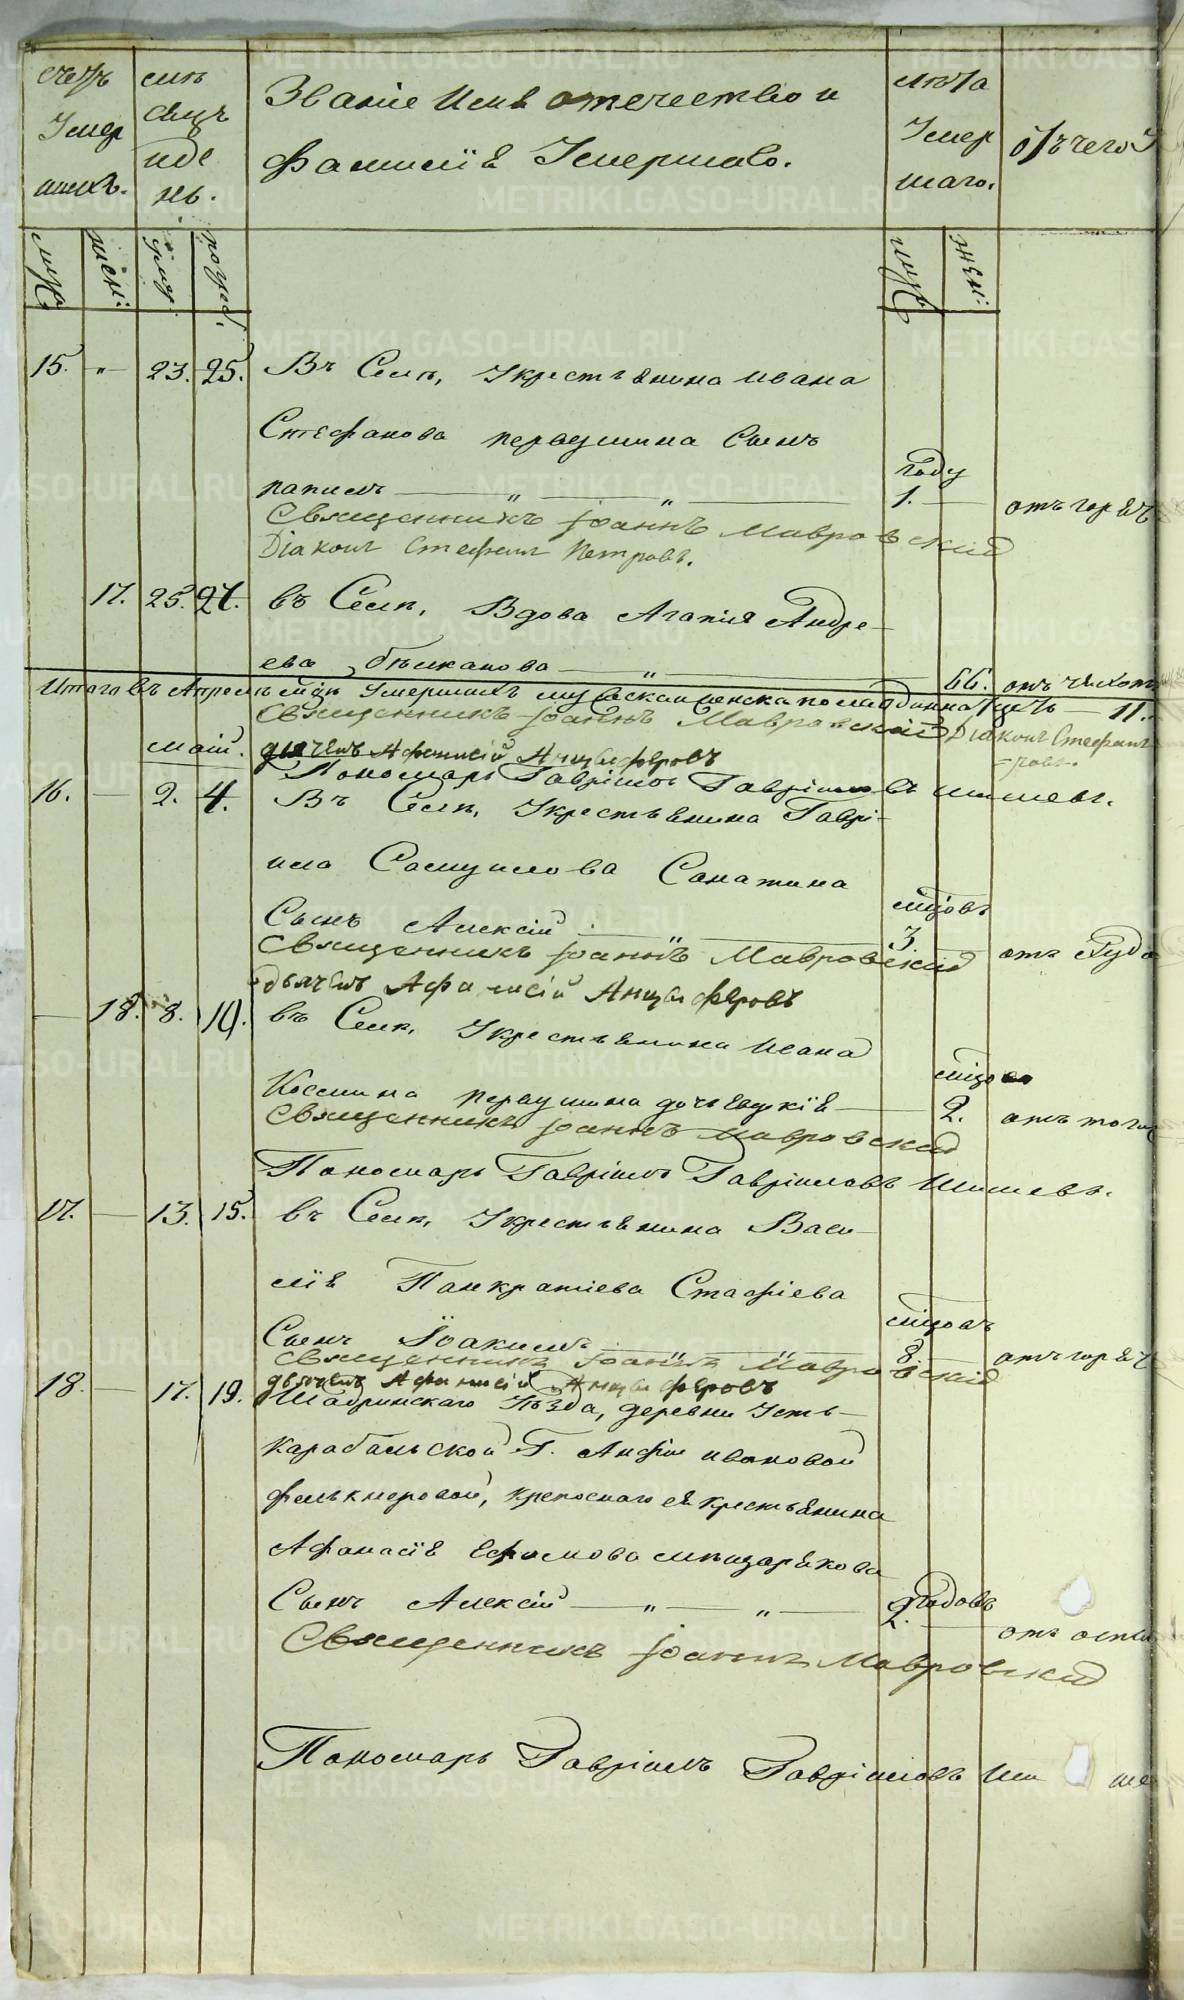 счетъ
Умер
шихъ.
мѣсяцъ
и де
нь.
Званіе Имя отечество и
фамилія Умершаго.
лѣта
Умер
шаго.
отъ чего У
муж
жен:
умер.
погреб.
муж
жен:
15. „ 23. 25. Въ Селѣ, Укрестьянина Ивана
Стефанова первушина Сынъ
году
1. отъ горяч
Священникъ Іоаннъ Мавровскій
Діаконъ Стефанъ Петровъ.
17. 25. 27. въ Селѣ, Вдова Агапія Андре-
ева, 66. отъ чахот
Итого въ Апрелѣ м̃цѣ Умершихъ 11.
Священникъ Іоаннъ Мавровскій Діаконъ Стефанъ
маій. дьячекъ Афанасій Анцыферовъ
Пономарь Гавріилъ Гавріиловъ Шишевъ.
16. — 2. 4. Въ Селѣ, Укрестьянина Гаврі-
ила Самуилова Санатина
мц̃овъ
Сынъ Алексій 3.
Священникъ Іоаннъ Мавровскій
дьячекъ Афанасій Анцыферовъ
— 18. 8. 10. въ Селѣ, Укрестьянина Ивана
Космина первушина дочь Евдокія 2. отъ того
Священникъ Іоаннъ Мавровскій
Пономарь Гавріилъ Гавріиловъ Шишевъ.
17. — 13. 15. въ Селѣ, Укрестьянина Васи-
лія Панкратіева Стафіева
мц̃овъ
Сынъ Іоакимъ „ „ 8. отъ горяч
Священникъ Іоаннъ Мавровскій
дьячекъ Афанасій Анцыферовъ
18. — 17. 19. Шадринскаго Уѣзда, деревни Усть-
карабольской Г. Анфіи ивановой
фелькнеровой, крепоснаго ея крестьянина
Афанасія Ефимова
годовъ
Сынъ Алексій — „ — „ — 2. отъ оспы
Священникъ Іоаннъ Мавровскій
Пономарь Гавріилъ Гавріиловъ Ши ше
METRIKI.GASO-URAL.RU